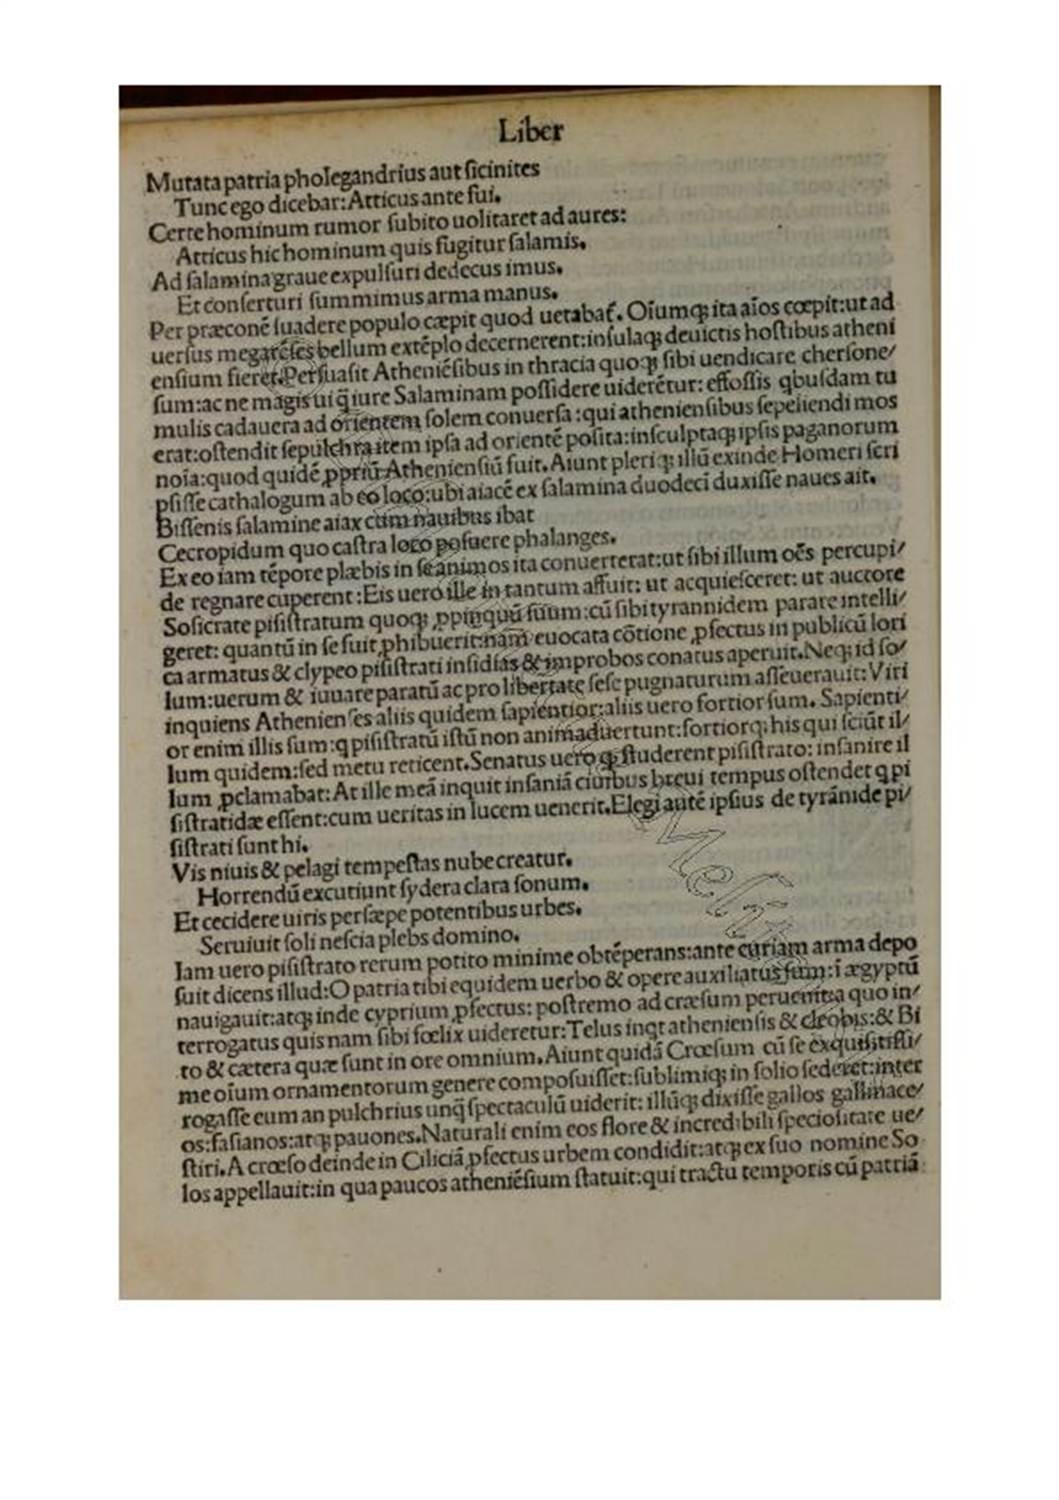 Liber
Mutata patria pholegandrius aut ſicinites
Tunc ego dicebar: Atticus ante fui.
Certe hominum rumor ſubito uolitaret ad aures:
Atticus hic hominum quis fugitur ſalamis.
Ad ſalamina graue expulſuri dedecus imus.
Et conſerturi ſummimus arma manus.
Per præconē ſuadere populo cæpit quod uetabat̃. Oīumqꝫ ita aīos cœpit: ut ad
uerſus megarēſes bellum extēplo decernerent: inſulaqꝫ deuictis hoſtibus atheni
enſium fieret. Perſuaſit Atheniēſibus in thracia quoqꝫ ſibi uendicare cherſone/
ſum: ac ne magis ui q̃ iure Salaminam poſſidere uiderētur: effoſſis qbuſdam tu
mulis cadauera ad orientem ſolem conuerſa: qui athenienſibus ſepeliendi mos
erat: oſtendit ſepulchra item ipſa ad orientē poſita: inſculptaqꝫ ipſis paganorum
noīa: quod quidē ꝓpriū Athenienſiū fuit. Aiunt pleriqꝫ illū exinde Homeri ſcri
pſiſſe cathalogum ab eo loco: ubi aiacē ex ſalamina duodeci duxiſſe naues ait.
Biſſenis ſalamine aiax cum nauibus ibat
Cecropidum quo caſtra loco poſuere phalanges.
Ex eo iam tēpore plæbis in ſe animos ita conuerterat: ut ſibi illum oēs percupi/
de regnare cuperent: Eis uero ille in tantum affuit: ut acquieſceret: ut auctore
Soſicrate piſiſtratum quoqꝫ ꝓpinquū ſuum: cū ſibi tyrannidem parare intelli/
geret: quantū in ſe fuit ꝓhibuerit: nam euocata cōtione ꝓfectus in publicū lori
ca armatus & clypeo piſiſtrati inſidias & improbos conatus aperuit. Neqꝫ id ſo/
lum: uerum & iuuare paratū ac pro libertate ſeſe pugnaturum aſſeuerauit: Viri
inquiens Athenienſes aliis quidem ſapientior: aliis uero fortior ſum. Sapienti/
or enim illis ſum: q piſiſtratū iſtū non animaduertunt: fortiorqꝫ his qui ſciūt il/
lum quidem: ſed metu reticent. Senatus uero qꝫ ſtuderent piſiſtrato: inſanire il
lum ꝓclamabat: At ille meā inquit inſaniā ciuibus breui tempus oſtendet q pi
ſiſtratidæ eſſent: cum ueritas in lucem uenerit. Elegi autē ipſius de tyrānide pi/
ſiſtrati ſunt hi.
Vis niuis & pelagi tempeſtas nube creatur.
Horrendū excutiunt ſydera clara ſonum.
Et cecidere uiris perſæpe potentibus urbes.
Seruiuit ſoli neſcia plebs domino.
Iam uero piſiſtrato rerum potito minime obtēperans: ante curiam arma depo
ſuit dicens illud: O patria tibi equidem uerbo & opere auxiliatus ſum: ī ægyptū
nauigauit: atqꝫ inde cyprium ꝓfectus: poſtremo ad cræſum peruenit: a quo in/
terrogatus quisnam ſibi fœlix uideretur: Telus inqt athenienſis & cleobis: & Bi
to & cætera quæ ſunt in ore omnium. Aiunt quidā Crœſum cū ſe exquiſitiſſi/
me oīum ornamentorum genere compoſuiſſet: ſublimiqꝫ in ſolio ſederet: inter
rogaſſe eum an pulchrius unq̃ ſpectaculū uiderit: illūqꝫ dixiſſe gallos gallinace/
os: faſianos: atqꝫ pauones. Naturali enim eos flore & incredibili ſpecioſitate ue/
ſtiri. A crœſo deinde in Ciliciā ꝓfectus urbem condidit: atqꝫ ex ſuo nomine So
los appellauit: in qua paucos atheniēſium ſtatuit: qui tractu temporis cū patriā